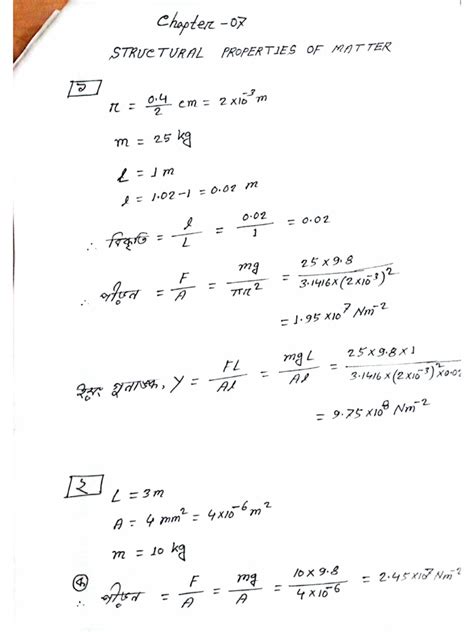 Chapter -07
STRUCTURAL PROPERTIES OF MATTER
১
r = 0.4/2 cm = 2×10⁻³ m
m = 25 kg
L = 1 m
l = 1.02-1 = 0.02 m
∴ বিকৃতি = l/L = 0.02/1 = 0.02
∴ পীড়ন = F/A = mg/πr² = 25×9.8/3.1416×(2×10⁻³)²
= 1.95×10⁷ Nm⁻²
গুনাঙ্ক, Y = FL/Al = mgL/Al = 25×9.8×1/3.1416×(2×10⁻³)²×0.02
= 9.75×10⁸ Nm⁻²
২
L = 3m
A = 4 mm² = 4×10⁻⁶ m²
m = 10 kg
ক পীড়ন = F/A = mg/A = 10×9.8/4×10⁻⁶ = 2.45×10⁷ Nm⁻²